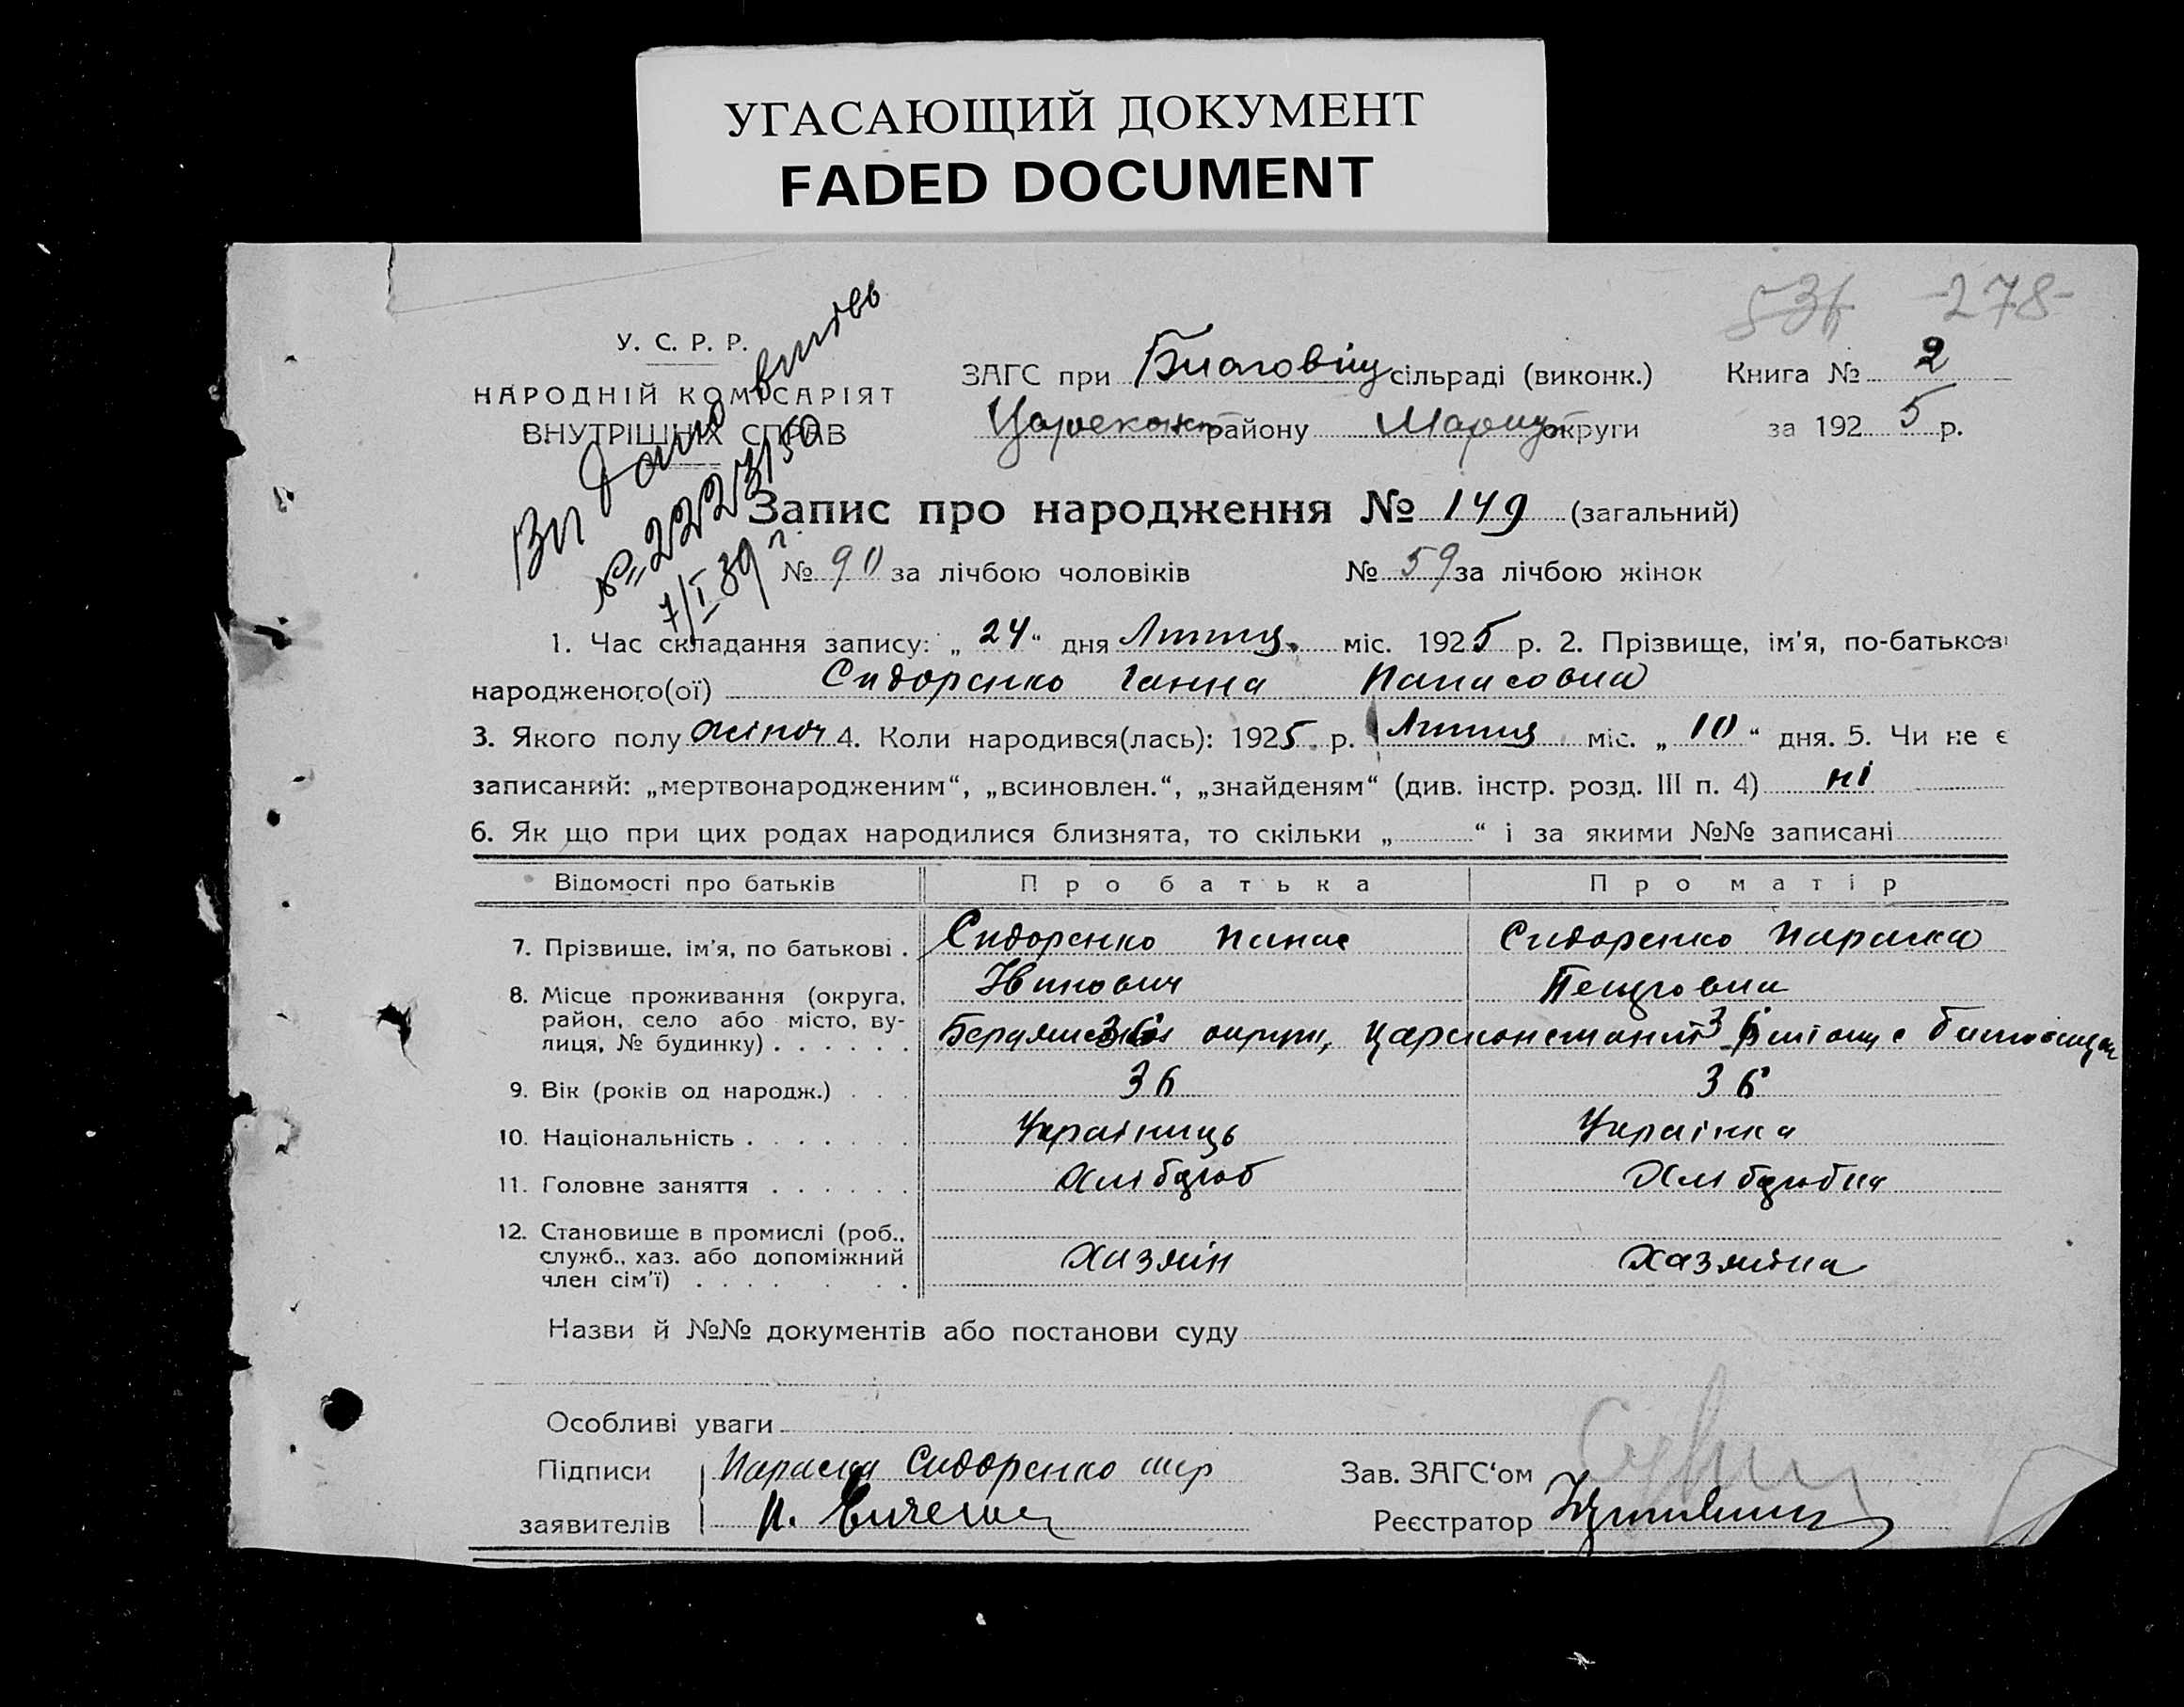 УГАСАЮЩИЙ ДОКУМЕНТ
FADED DOCUMENT
536 -278-
У. С. Р. Р.
НАРОДНІЙ КОМІСАРІЯТ
ВНУТРІШНІХ СПРАВ
№ 22273/50
7/I 39 г.
ЗАГС при Благовіщ сільраді (виконк.) Книга № 2
Царекокст району Маріуп округи за 192 5 р.
Запис про народження № 149 (загальний)
№ 90 за лічбою чоловіків № 59 за лічбою жінок
1. Час складання запису: „ 24 “ дня Липця міс. 1925 р. 2. Прізвище, ім'я, по-батькові
народженого(ої) Сидоренко Ганна Панасовна
3. Якого полу жіноч 4. Коли народився(лась): 1925 р. Липця міс. „ 10 “ дня. 5. Чи не є
записаний: „мертвонародженим“, „всиновлен.“, „знайденям“ (див. інстр. розд. III п. 4) ні
6. Як що при цих родах народилися близнята, то скільки „ “ і за якими №№ записані
Відомості про батьків Про батька Про матір
7. Прізвище, ім'я, по батькові . Сидоренко Панас Сидоренко Параска
Іванович Петровна
8. Місце проживання (округа,
район, село або місто, ву-
лиця, № будинку) . . . . . . округи,
9. Вік (років од народж.) . . . 36 36
10. Національність . . . . . . . Українець Українка
11. Головне заняття . . . . . . Хлібороб Хліборобка
12. Становище в промислі (роб.,
служб., хаз. або допоміжний
член сім'ї) . . . . . . . Хазяїн Хазяйка
Назви й №№ документів або постанови суду
Особливі уваги
Підписи Параска Сидоренко Зав. ЗАГС'ом
заявителів Реєстратор